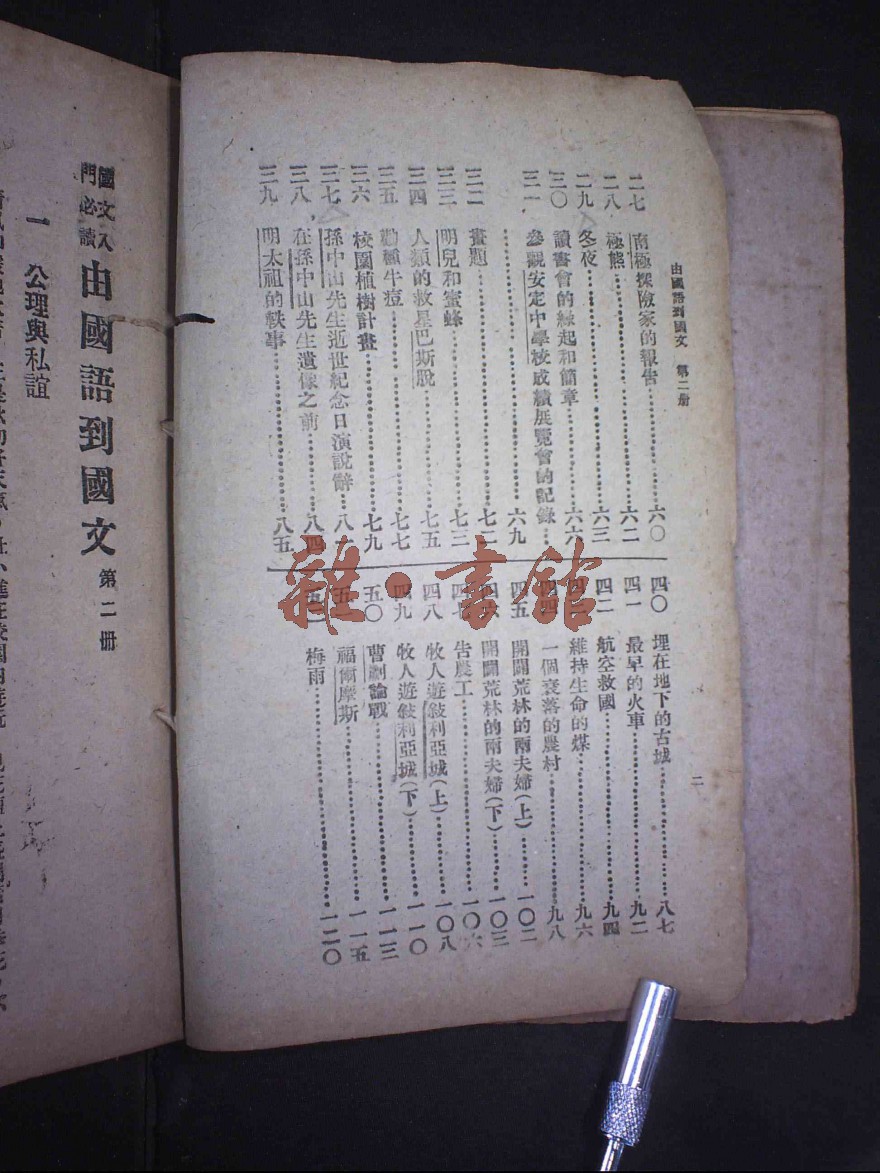 由國語到國文 第二册
二七 南極探險家的報告……六〇
二八 極熊……六二
二九 冬夜……六三
三〇 讀書會的緣起和簡章……六六
三一 參觀安定中學校成績展覽會的記錄…
……六九
三二 畫題……七二
三三 明兒和蜜蜂……七三
三四 人類的救星巴斯脫……七五
三五 勸種牛痘……七七
三六 校園植樹計畫……七九
三七 孫中山先生逝世紀念日演說辭…八一
三八 在孫中山先生遺像之前……八四
三九 明太祖的軼事……八五
四〇 埋在地下的古城……八七
四一 最早的火車……九二
四二 航空救國……九四
四三 維持生命的煤……九六
四四 一個衰落的農村……九八
四五 開闢荒林的兩夫婦(上)……一〇二
四六 開闢荒林的兩夫婦(下)……一〇三
四七 告農工……一〇六
四八 牧人遊敍利亞城(上)……一〇八
四九 牧人遊敍利亞城(下)……一一〇
五〇 曹劌論戰……一一三
五一 福爾摩斯……一一五
五二 梅雨……一二〇
二
國文入
門必讀
由國語到國文 第二册
一 公理與私誼
雜·書館